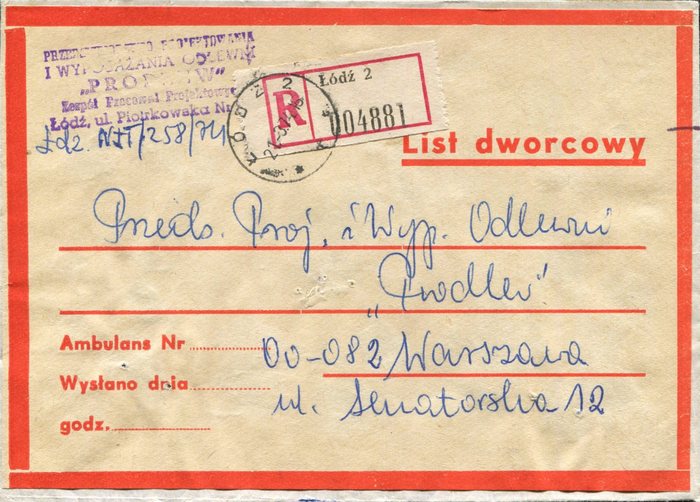 PRZEDSIĘBIORSTWO PROJEKTOWANIA
I WYPOSAŻANIA ODLEWNI
„PRODLEW"
Zespół Pracowni Projektowych
Łódź, ul. Piotrkowska Nr
Łdz. NIT/258/74
Łódź 2
R
004881
ŁÓDŹ 2
List dworcowy
Przeds. Proj. i Wyp. Odlewni
„Prodlew"
Ambulans Nr
00-082 Warszawa
Wysłano dnia
ul. Senatorska 12
godz.